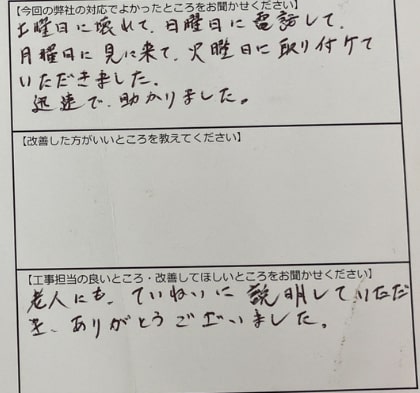 【今回の弊社の対応でよかったところをお聞かせください】
土曜日に壊れて、日曜日に電話して、
月曜日に見に来て、火曜日に取り付けて
いただきました。
迅速で、助かりました。
【改善した方がいいところを教えてください】
【工事担当の良いところ・改善してほしいところをお聞かせください】
老人にも、ていねいに説明していただ
き、ありがとうございました。